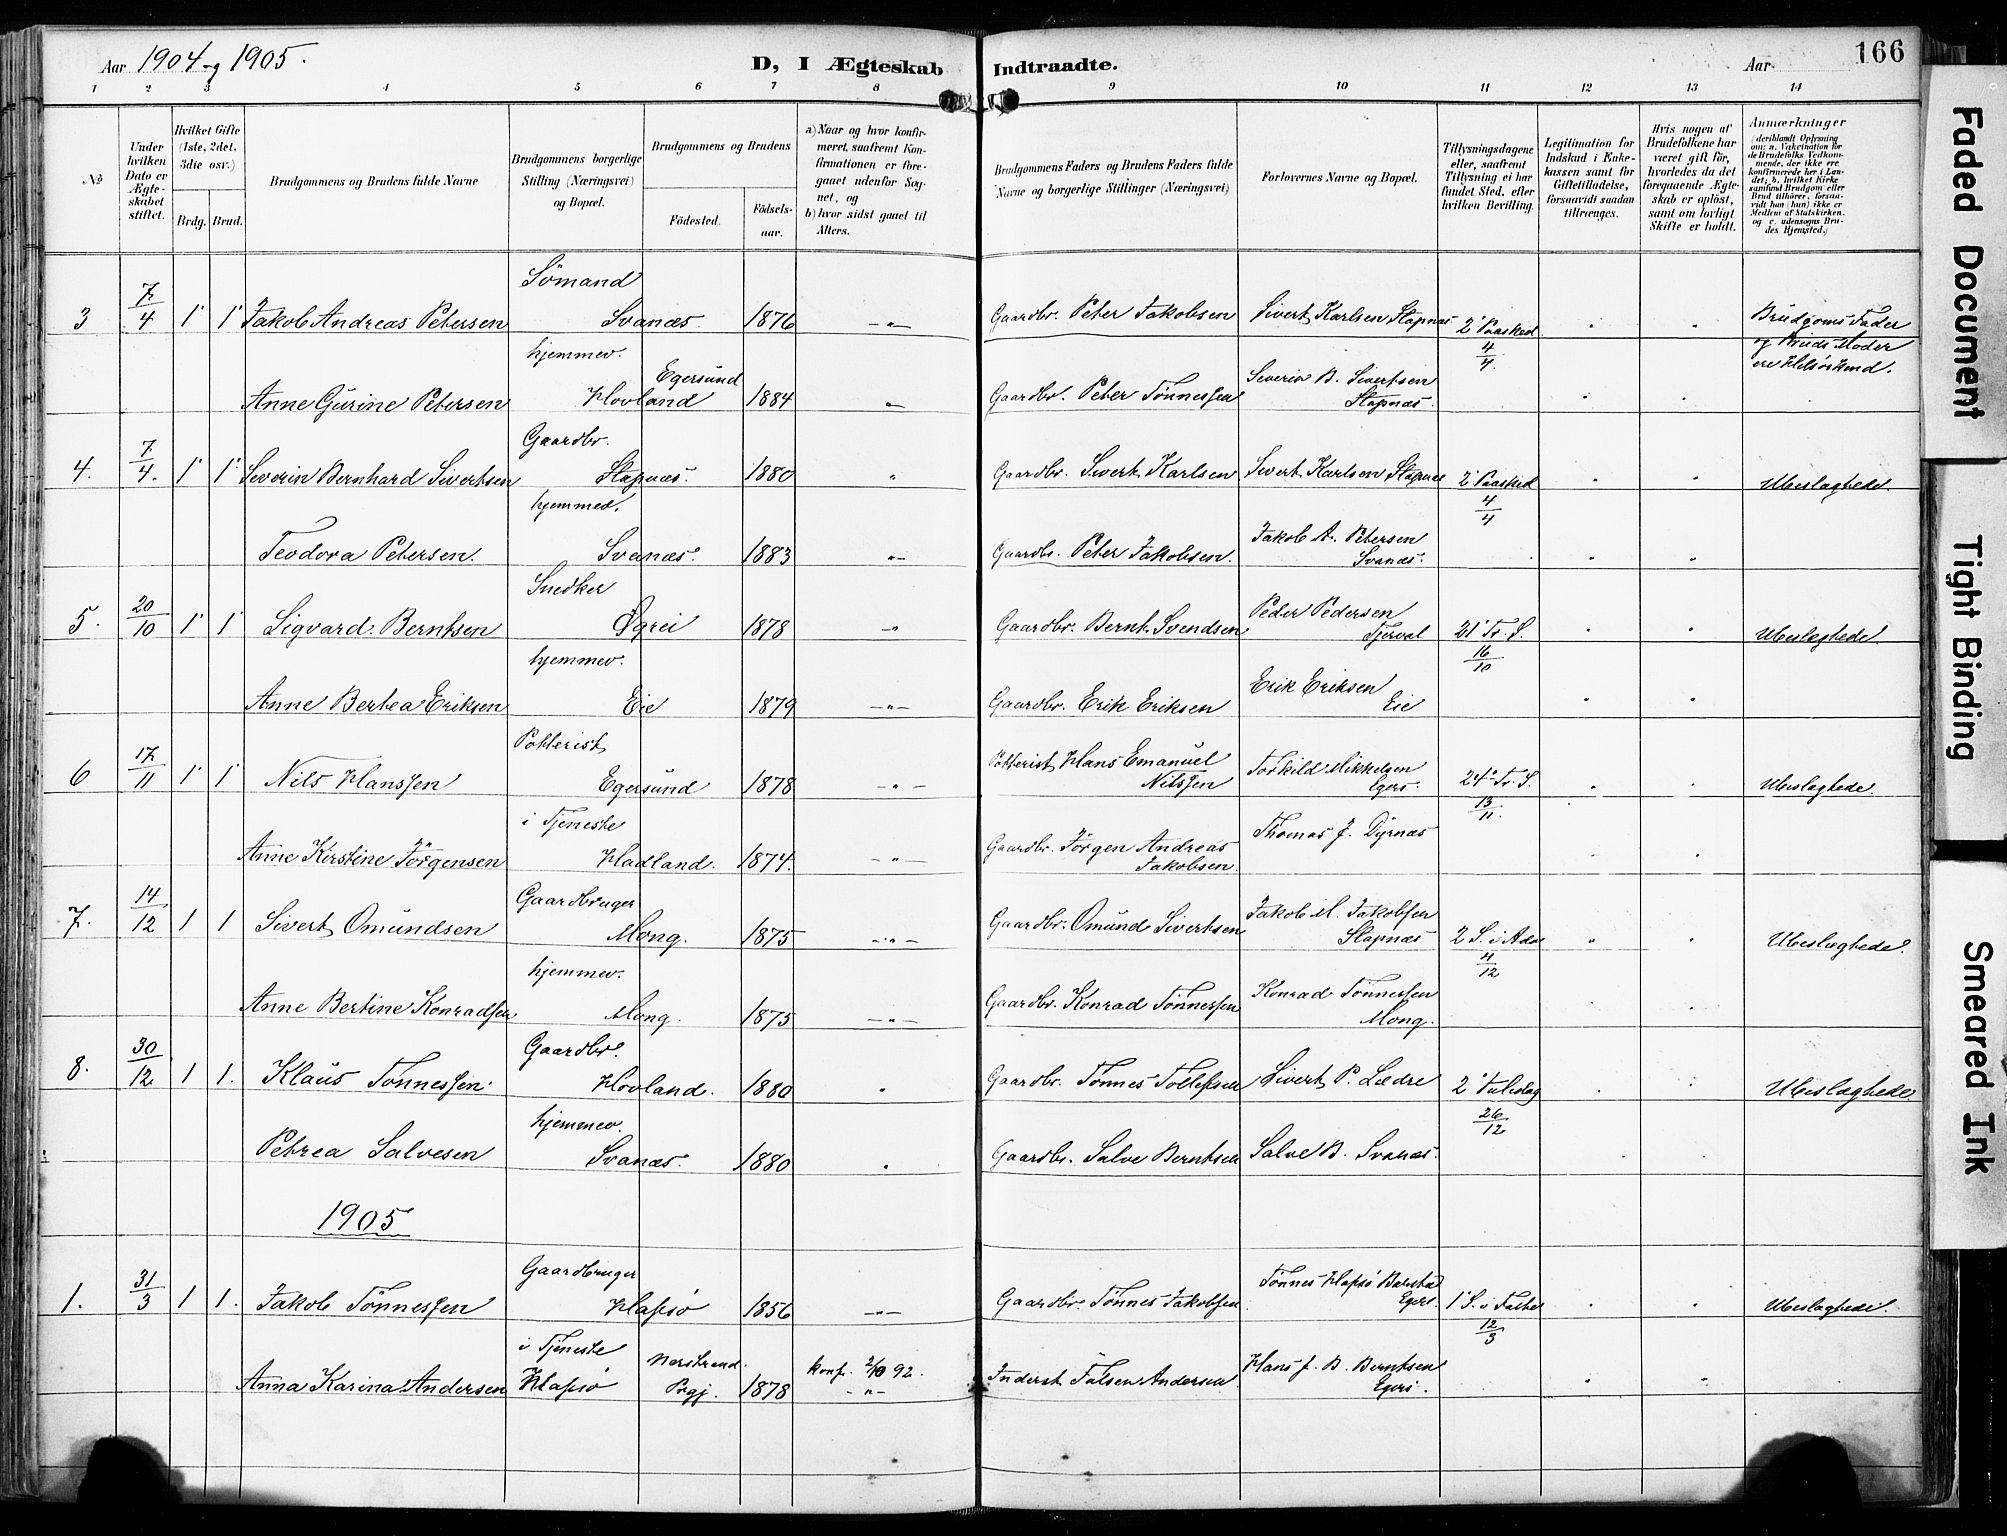 Aar 1904 og 1905.
D, I Ægteskab Indtraadte.
Aar
166
1 2 3 4 5 6 7 8 9 10 11 12 13 14
No
Under hvilken Dato er Ægteskabet stiftet.
Hvilket Gifte (1ste, 2det, 3die osv.)
Brdg. Brud.
Brudgommens og Brudens fulde Navne
Brudgommens borgerlige Stilling (Næringsvei) og Bopæl.
Brudgommens og Brudens
Fødested.
Fødselsaar.
a) Naar og hvor konfirmeret, saafremt Konfirmationen er foregaaet udenfor Sognet, og
b) hvor sidst gaaet til Alters.
Brudgommens Faders og Brudens Faders fulde Navne og borgerlige Stillinger (Næringsvei)
Forlovernes Navne og Bopæl.
Tillysningsdagene eller, saafremt Tillysning ei har fundet Sted, efter hvilken Bevilling.
Legitimation for Indskud i Enkekassen samt for Giftetilladelse, forsaavidt saadan tiltrænges.
Hvis nogen af Brudefolkene har været gift før, hvorledes da det foregaaende Ægteskab er opløst, samt om lovligt Skifte er holdt.
Anmærkninger
(deriblandt Oplysning om: a. Vakcination for de Brudefolks Vedkommende, der ikke ere konfirmerede her i Landet; b. hvilket Kirkesamfund Brudgom eller Brud tilhører, forsaavidt han (hun) ikke er Medlem af Statskirken, og c. udensogns Brudes Hjemsted.)
3 7/4 1 1 Jakob Andreas Petersen Sömand Svanæs 1876 -"- Gaardbr. Peter Jakobsen Sivert Karlsen Stapnæs 2' Paasked 4/4 " " Brudgoms Fader og Bruds Moder ere Helsöskend.
Anne Gurine Petersen hjemmev. Hovland Egersund 1884 " Gaardbr. Peter Tönnessen Severin B. Sivertsen Stapnæs. " "
4. 7/4. 1 1 Severin Bernhard Sivertsen Gaardbr. Stapnæs. 1880 " Gaardbr. Sivert Karlsen Sivert Karlsen Stapnæs 2' Paasked 4/4 " " Ubeslægtede.
Teodora Petersen. hjemmev. Svanæs. 1883 "- Gaardbr. Peter Jakobsen. Jakob A. Petersen Svanæs. " "
5. 20/10 1 1 Sigvard Berntsen Snedker Øgrei 1878 -"- Gaardbr. Bernt Svendsen Peder Pedersen Tjerval 21' Tr. S. 16/10 " " Ubeslægtede.
Anne Bertea Eriksen hjemmev. Eie 1879 -"- Gaardbr. Erik Eriksen Erik Eriksen Eie " "
6 17/11 1 1 Nils Hanssen Potterist Egersund 1878 -"- Potterist Hans Emanuel Nilssen Torkild Mikkelsen Egers. 24' Tr. S. 13/11. " " Ubeslægtede.
Anne Kirstine Jörgensen i Tjeneste Hadland. 1874. -"- Gaardbr. Jörgen Andreas Jakobsen. Thomas J. Dyrnæs " "
7. 14/12 1 1 Sivert Omundsen Gaardbruger Mong. 1875 -"- Gaardbr. Omund Sivertsen Jakob M. Jakobsen Stapnæs 2 S. i Adv 4/12 " " Ubeslægtede.
Anne Bertine Konradsen hjemmev. Mong. 1875 -"- Gaardbr. Konrad Tönnessen Konrad Tönnessen Mong.
8. 30/12 1 1. Klaus Tönnessen. Gaardbr. Hovland. 1880 " Gaardbr. Tönnes Tollefsen Sivert P. Lædre 2' Juledag 26/12 Ubeslægtede.
Petrea Salvesen hjemmev. Svanæs. 1880 " Gaardbr. Salve Berntsen Salve B. Svanæs.
1905
1. 31/3 1 1. Jakob Tönnessen Gaardbruger Hafsö 1856 -"- Gaardbr. Tönnes Jakobsen Tönnes Hafsö Egers. 1' S. i Faste 12/3 " " Ubeslægtede.
Anna Karina Andersen i Tjeneste Hafsö Nerstrand Prgj. 1878 konf. 2/10 92. -"- Inderst Andersen. Hans J. B. Berntsen Egers. " "
Faded Document
Tight Binding
Smeared Ink